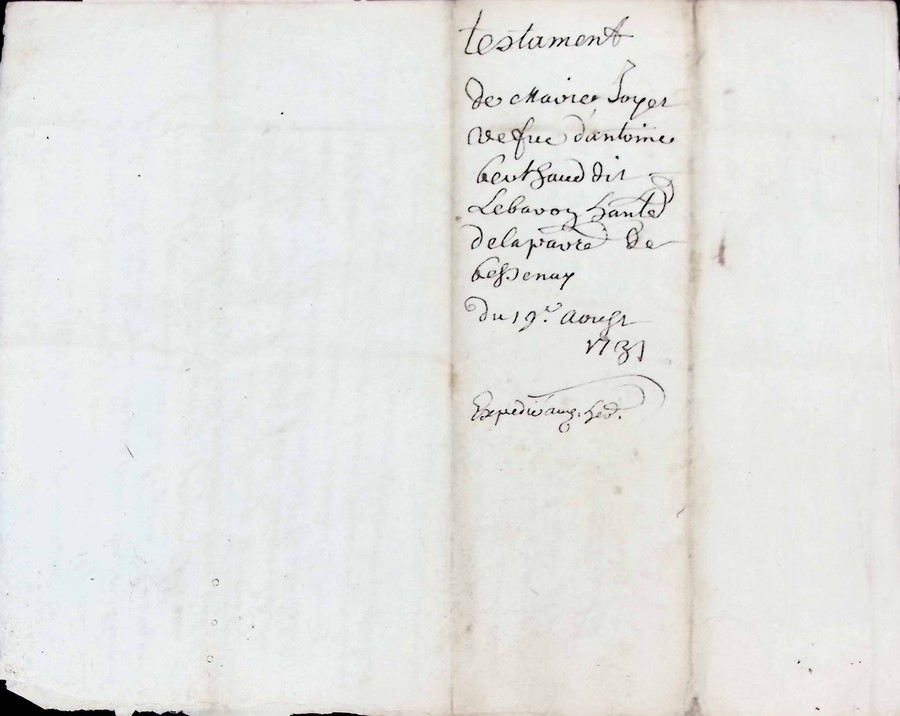 testament
de Marie Joyet
vefue d'antoine
berthaud dit
Lebavoz hante
de la parre de
bessenay
du 19.e Aougst
1731
Expedié aux hed.